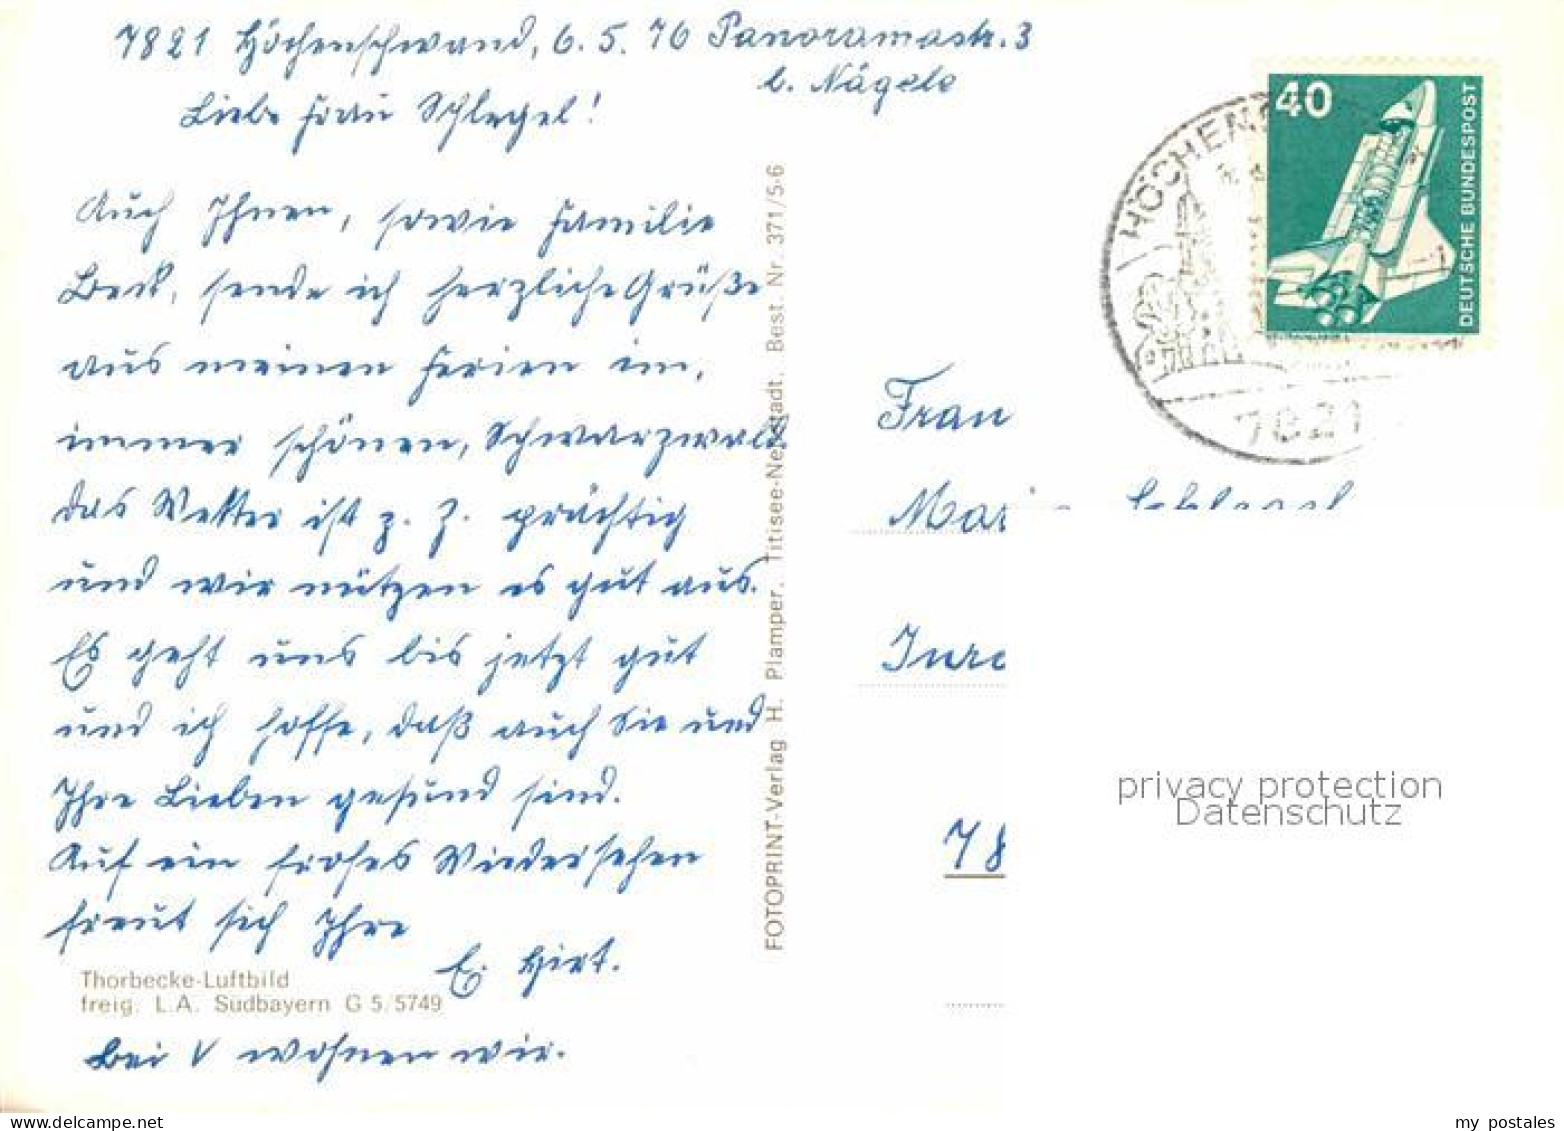 7821 Höchenschwand, 6.5.76 Panoramastr. 3
b. Nägele
Liebe Frau Schlegel!
Auch Ihnen, sowie Familie
Beck, sende ich herzliche Grüße
aus meinen Ferien im,
immer schönen, Schwarzwald
das Wetter ist z. Z. prächtig
und wir nützen es gut aus.
Es geht uns bis jetzt gut
und ich hoffe, daß auch Sie und
Ihre Lieben gesund sind.
Auf ein frohes Wiedersehen
freut sich Ihre
E. Hirt.
Thorbecke-Luftbild
freig. L.A. Südbayern G 5/5749
Bei V wohnen wir.
FOTOPRINT-Verlag H. Plamper, Titisee-Neustadt. Best. Nr. 371/5-6
40
DEUTSCHE BUNDESPOST
7821
Frau
Schlegel
78
privacy protection
Datenschutz
my postales